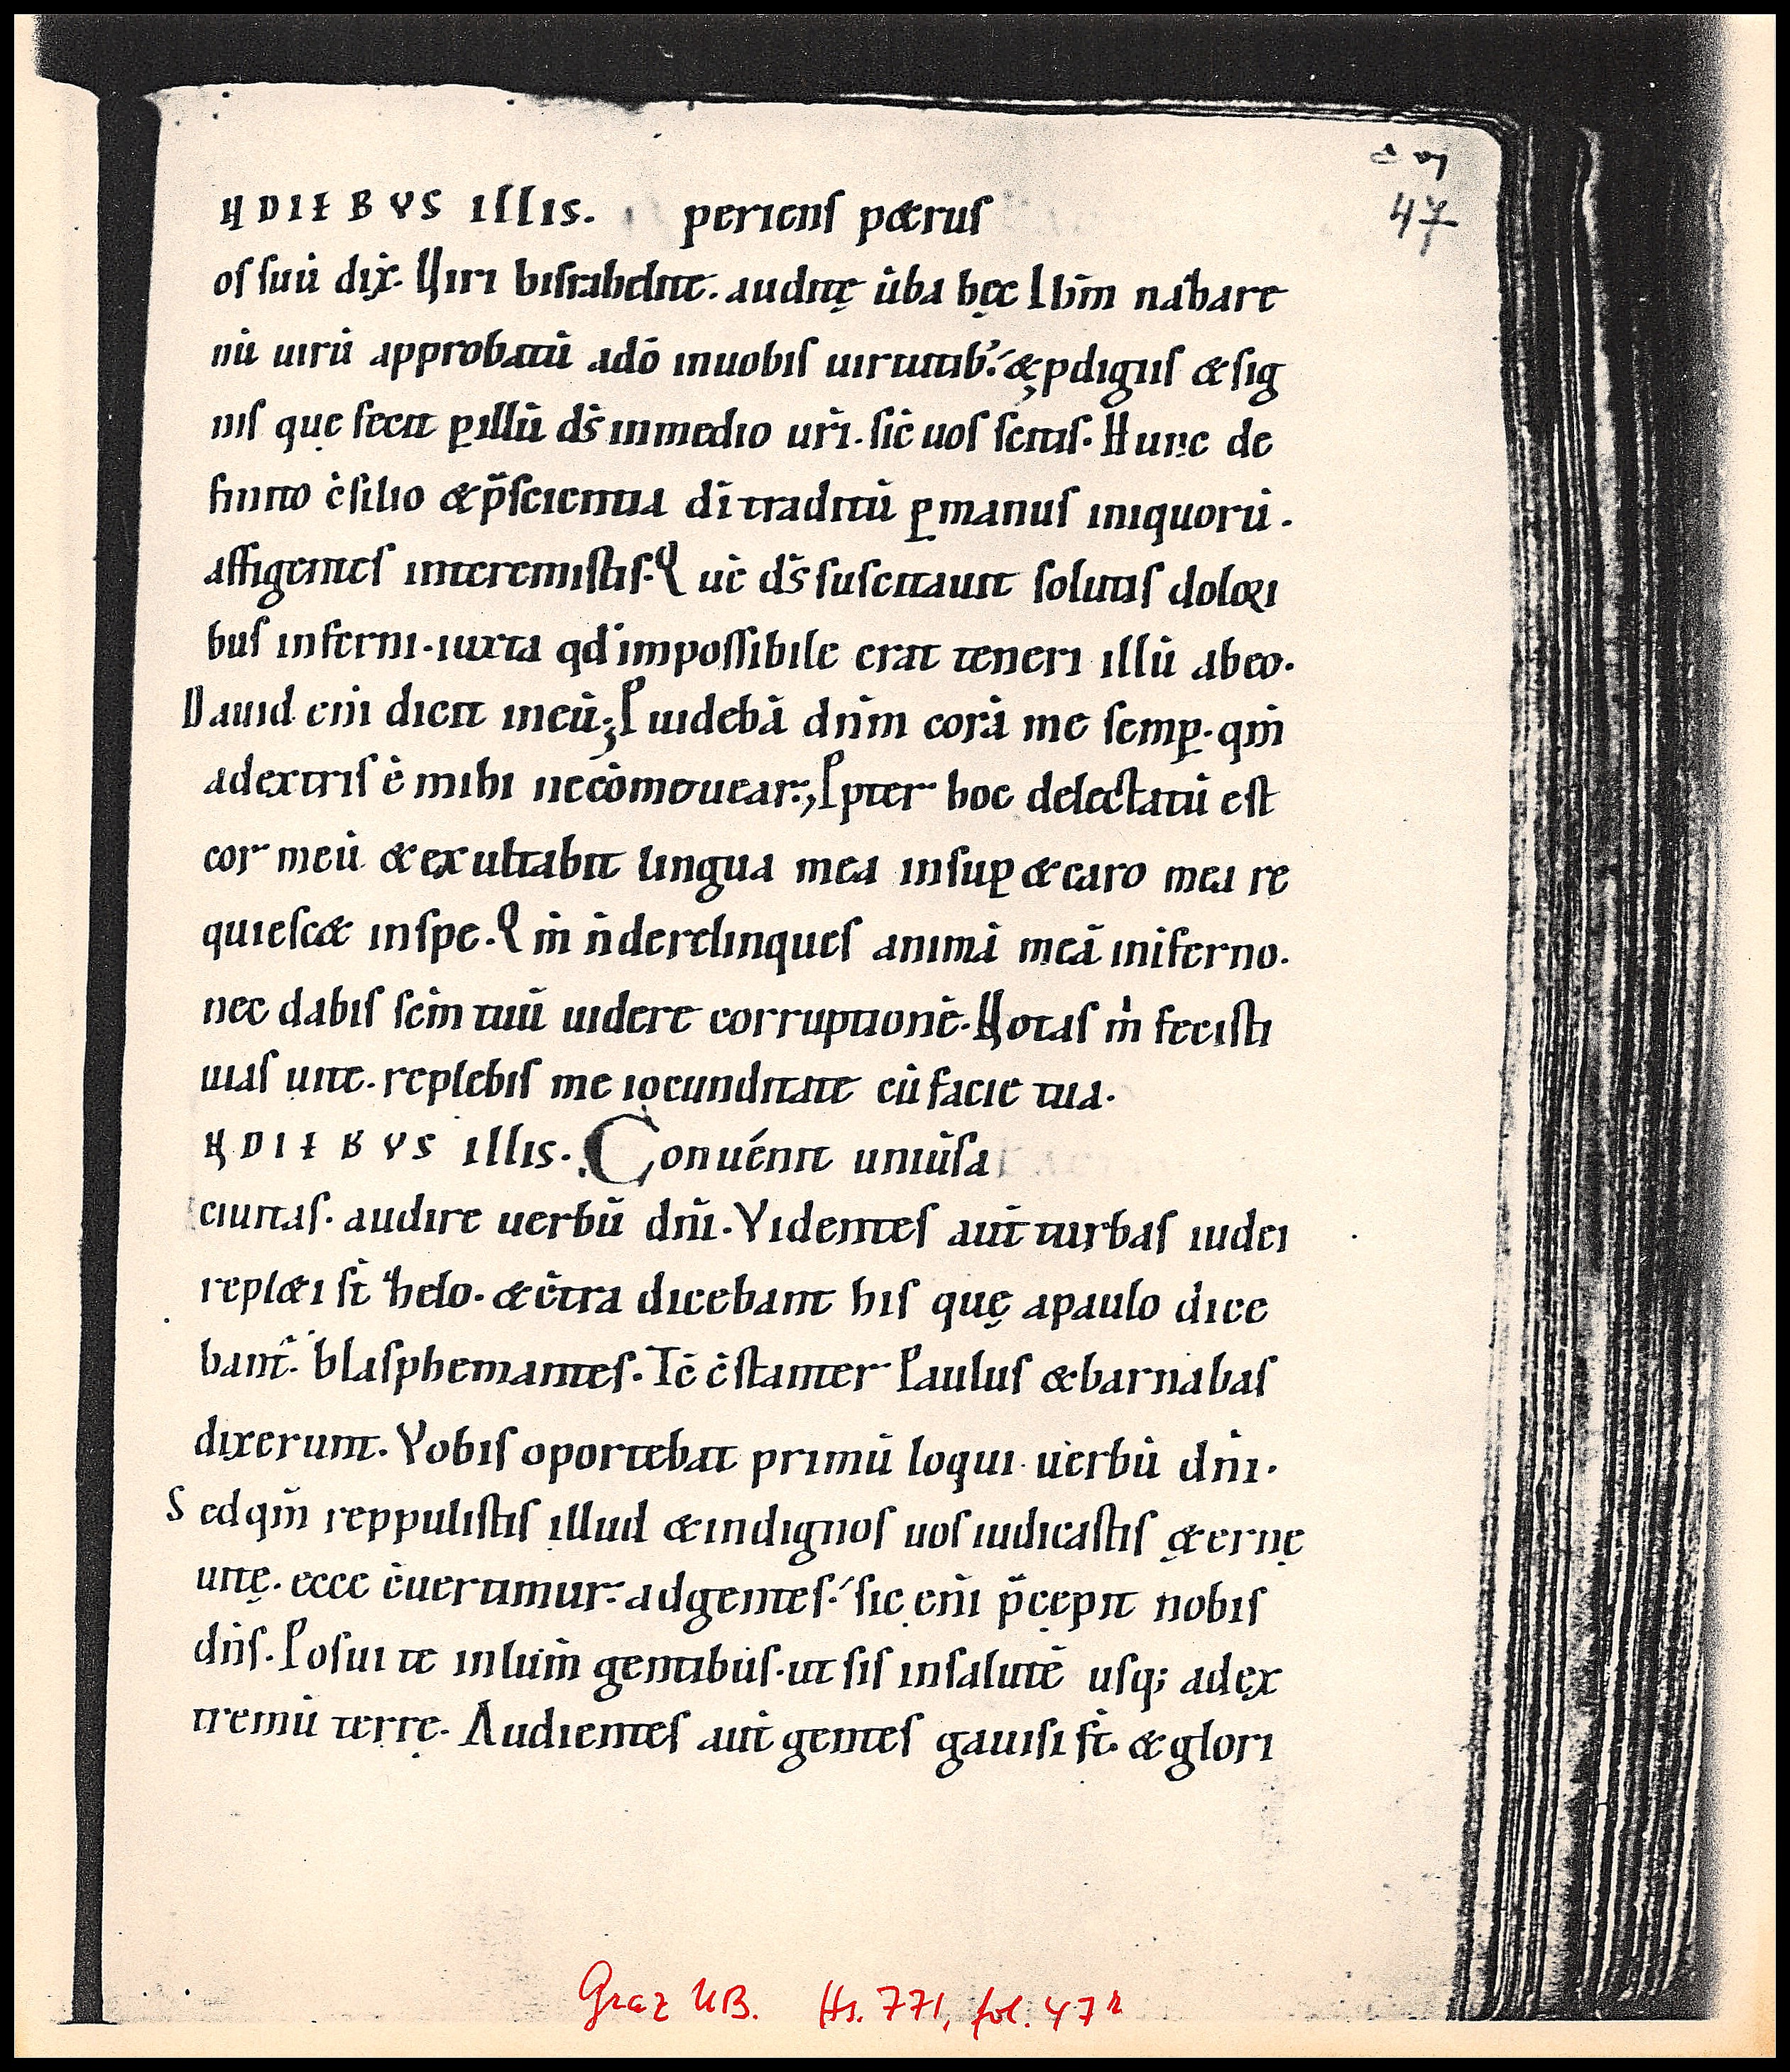 47
IN DIEBUS illis. periens petrus
os suū dix̄. Viri israhelite. audite ūba hęc Ihm̄ nazare
nū uirū approbatū a dō in uobis uirtutib᾽. & pdigiis & sig
nis quę fecit ꝑ illū ds̄ in medio ur̄i. sic̄ uos scitis. Hunc de
finito c̄silio & p̄scientia dī traditū ꝑ manus iniquorū.
affigentes interemistis. Quē ds̄ suscitauit solutis dolori
bus inferni. iuxta qd̄ impossibile erat teneri illū ab eo.
Dauid eni dicit in eū; Puidebā dnm̄ corā me semꝑ. qm̄
a dextris ē mihi ne cōmouear; Ppter hoc delectatū est
cor meū & exultabit lingua mea insuꝑ & caro mea re
quiescet in spe. Qm̄ n̄ derelinques animā meā in iferno.
nec dabis scm̄ tuū uidere corruptionē. Notas m̄ fecisti
uias uite. replebis me iocunditate cū facie tua.
IN DIEBUS illis. Conuénit uniūsa
ciuitas. audire uerbū dn̄i. Videntes aut̄ turbas iudei
repleti st̄ zelo. & c̄tra dicebant his quę a paulo dice
bant᾽. blasphemantes. Tc̄ c̄stanter Paulus & barnabas
dixerunt. Vobis oportebat primū loqui uerbū dn̄i.
Sed qm̄ reppulistis illud & indignos uos iudicastis ęternę
uitę. ecce c̄uertimur ad gentes. sic eni p̄cepit nobis
dn̄s. Posui te in lum̄ gentibus. ut sis in salutē usq; ad ex
tremū terrę. Audientes aut̄ gentes gauisi st̄. & glori
Graz UB. Hs. 771, fol. 47r